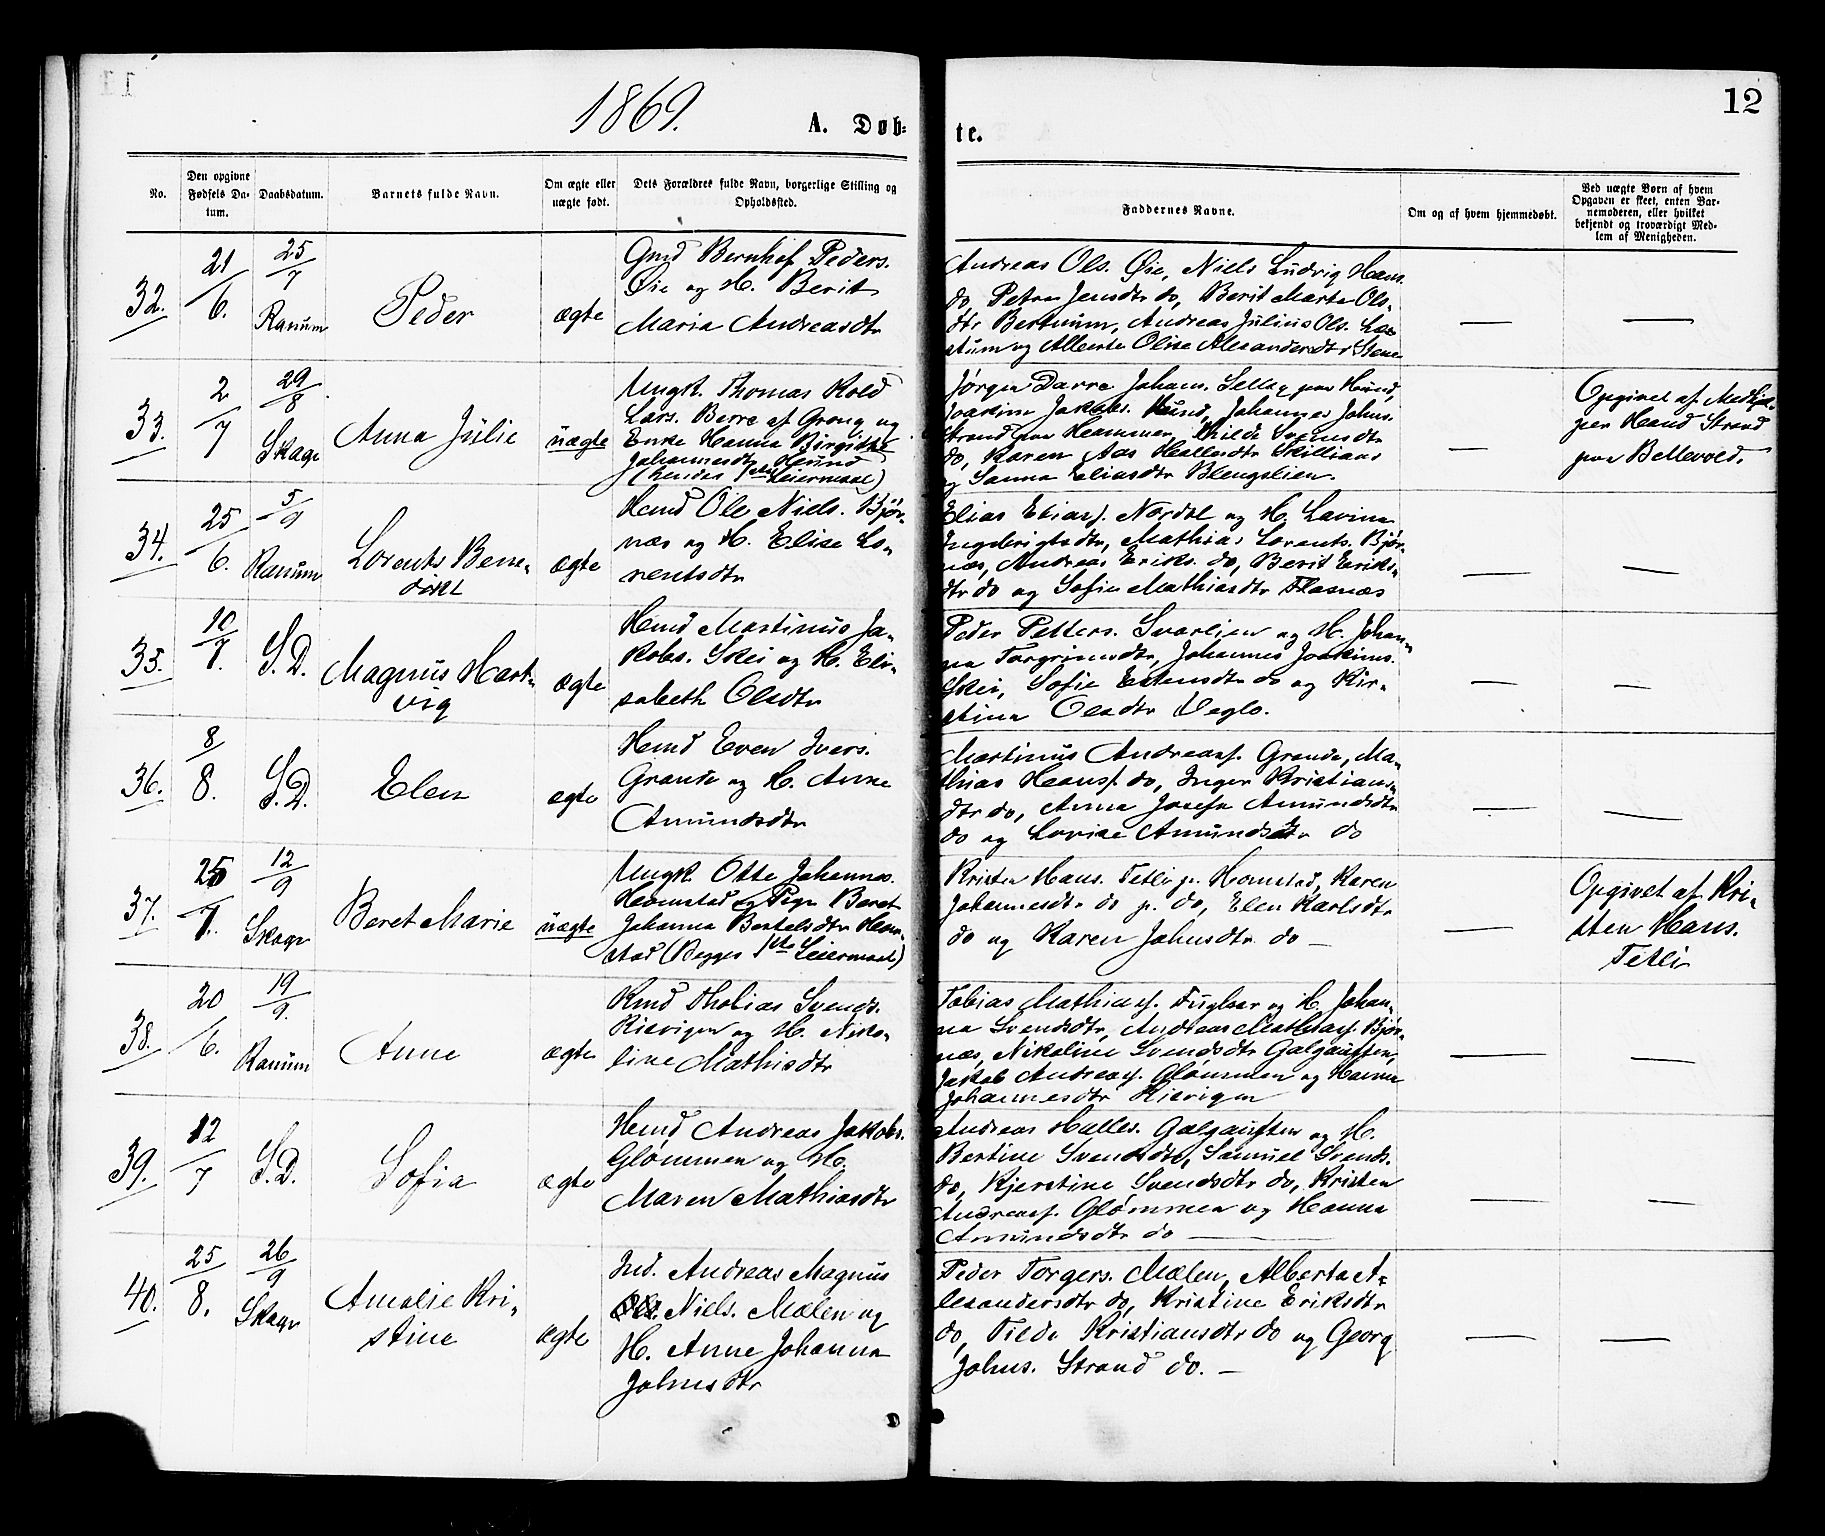 1869.
A. Døb-
te.
12
No.
Den opgivne Fødsels Da-tum.
Daabsdatum.
Barnets fulde Navn.
Om ægte eller uægte født.
Dets Forældres fulde Navn, borgerlige Stilling og Opholdssted.
Faddernes Navne.
Om og af hvem hjemmedøbt.
Ved uægte Børn af hvem Opgaven er skeet, enten Bar-nemoderen, eller hvilket bekjendt og troværdigt Med-lem af Menigheden.
32.
21/6.
25/7
Ranum
Peder
ægte
Gmd Bernhof Peders.
Øie og H. Berit
Maria Andreasdtr
Andreas Ols. Øie, Niels Ludvig Hans.
do, Petra Jensdtr do, Berit Marta Ols-
dtr Bertnum, Andreas Julius Ols.
og Alberte Olise Alexandersdtr
33.
2/7
29/8
Skage
Anna Julie
uægte
Ungk. Thomas Kold
Lars. Berre af Grong og
Enke Hanna Birgitte
Johannesdtr Hund
(hendes 1ste Leiermaal)
Jørgen Darre Johans. Selleg paa Hund,
Joakim Jakobs. Hund, Johannes Johns.
Strand paa Hammer, Svensdtr
do, Karen Aas Hallesdtr Skillians
og Sanna Eliasdtr Blengslien.
Opgivet af
Strand
paa Bellevold.
34.
25/6.
5/9
Ranum
Lorents Bene-
dikt
ægte
Hmd Ole Niels. Bjør-
næs og H. Elise Lo-
rentsdtr
Elias Eliass. Nordbl og H. Lavina
Ingebrigtsdtr, Mathias Lorents. Bjør-
næs, Andreas Eriks. do, Berit Eriks-
dtr do og Sofie Mathiasdtr Flasnæs
35.
10/7.
S.D.
Magnus Hart-
vig
ægte
Hmd Martinus Ja-
kobs. Skei og H. Eli-
sabeth Olsdtr
Peder Petters. Svarlien og H. Johan-
na Torgrimsdtr, Johannes Joakims.
Skei, Sofie Estensdtr do og Kir-
stina Olsdtr Veglo.
36.
8/8.
S.D.
Elen
ægte
Hmd Even Ivers.
Grande og H. Anne
Amundsdtr
Martinus Andreass. Grande, Ma-
thias Hanss. do, Inger Kristians-
dtr do, Anna Josefa Amundsdtr
do og Lovise Amundsdtr do
37.
25/7.
12/9
Skage
Beret Marie
uægte
Ungk. Otte Johannes.
Homstad og Pige Beret
Johanna Bertelsdtr Hom-
stad (Begges 1ste Leiermaal)
Kristen Hans. Fetli p. Homstad, Karen
Johannesdtr do p. do, Elen Karlsdtr
do og Karen Johnsdtr do
Opgivet af Kri-
sten Hans.
Fetli
38.
20/6.
19/9.
Ranum
Anne
ægte
Hmd Tholias Svends.
Risvigen og H. Niko-
line Mathisdtr
Tobias Mathiass. Fuglaar og H. Johan-
na Svendsdtr, Andreas Mathiass. Bjør-
næs, Nikoline Svendsdtr Galgauften,
Jakob Andreass. Glømmen og Hanna
Johannesdtr Risvigen
39.
12/7
S.D.
Sofia
ægte
Hmd Andreas Jakobs.
Glømmen og H.
Maren Mathiasdtr
Andreas Halles. Galgauften og H.
Bertine Svendsdtr, Samuel Svends.
do, Kjerstine Svendsdtr do, Kristen
Andreass. Glømmen og Hanna
Amundsdtr do
40.
25/8.
26/9
Skage
Amalie Kri-
stine
ægte
Ind. Andreas Magnus
Niels. Mælen og
H. Anne Johanna
Johnsdtr
Peder Torgers. Mælen, Alberta A-
lexandersdtr do, Kristine Eriksdtr
do, Tilda Kristiansdtr do og Georg
Johns. Strand do.